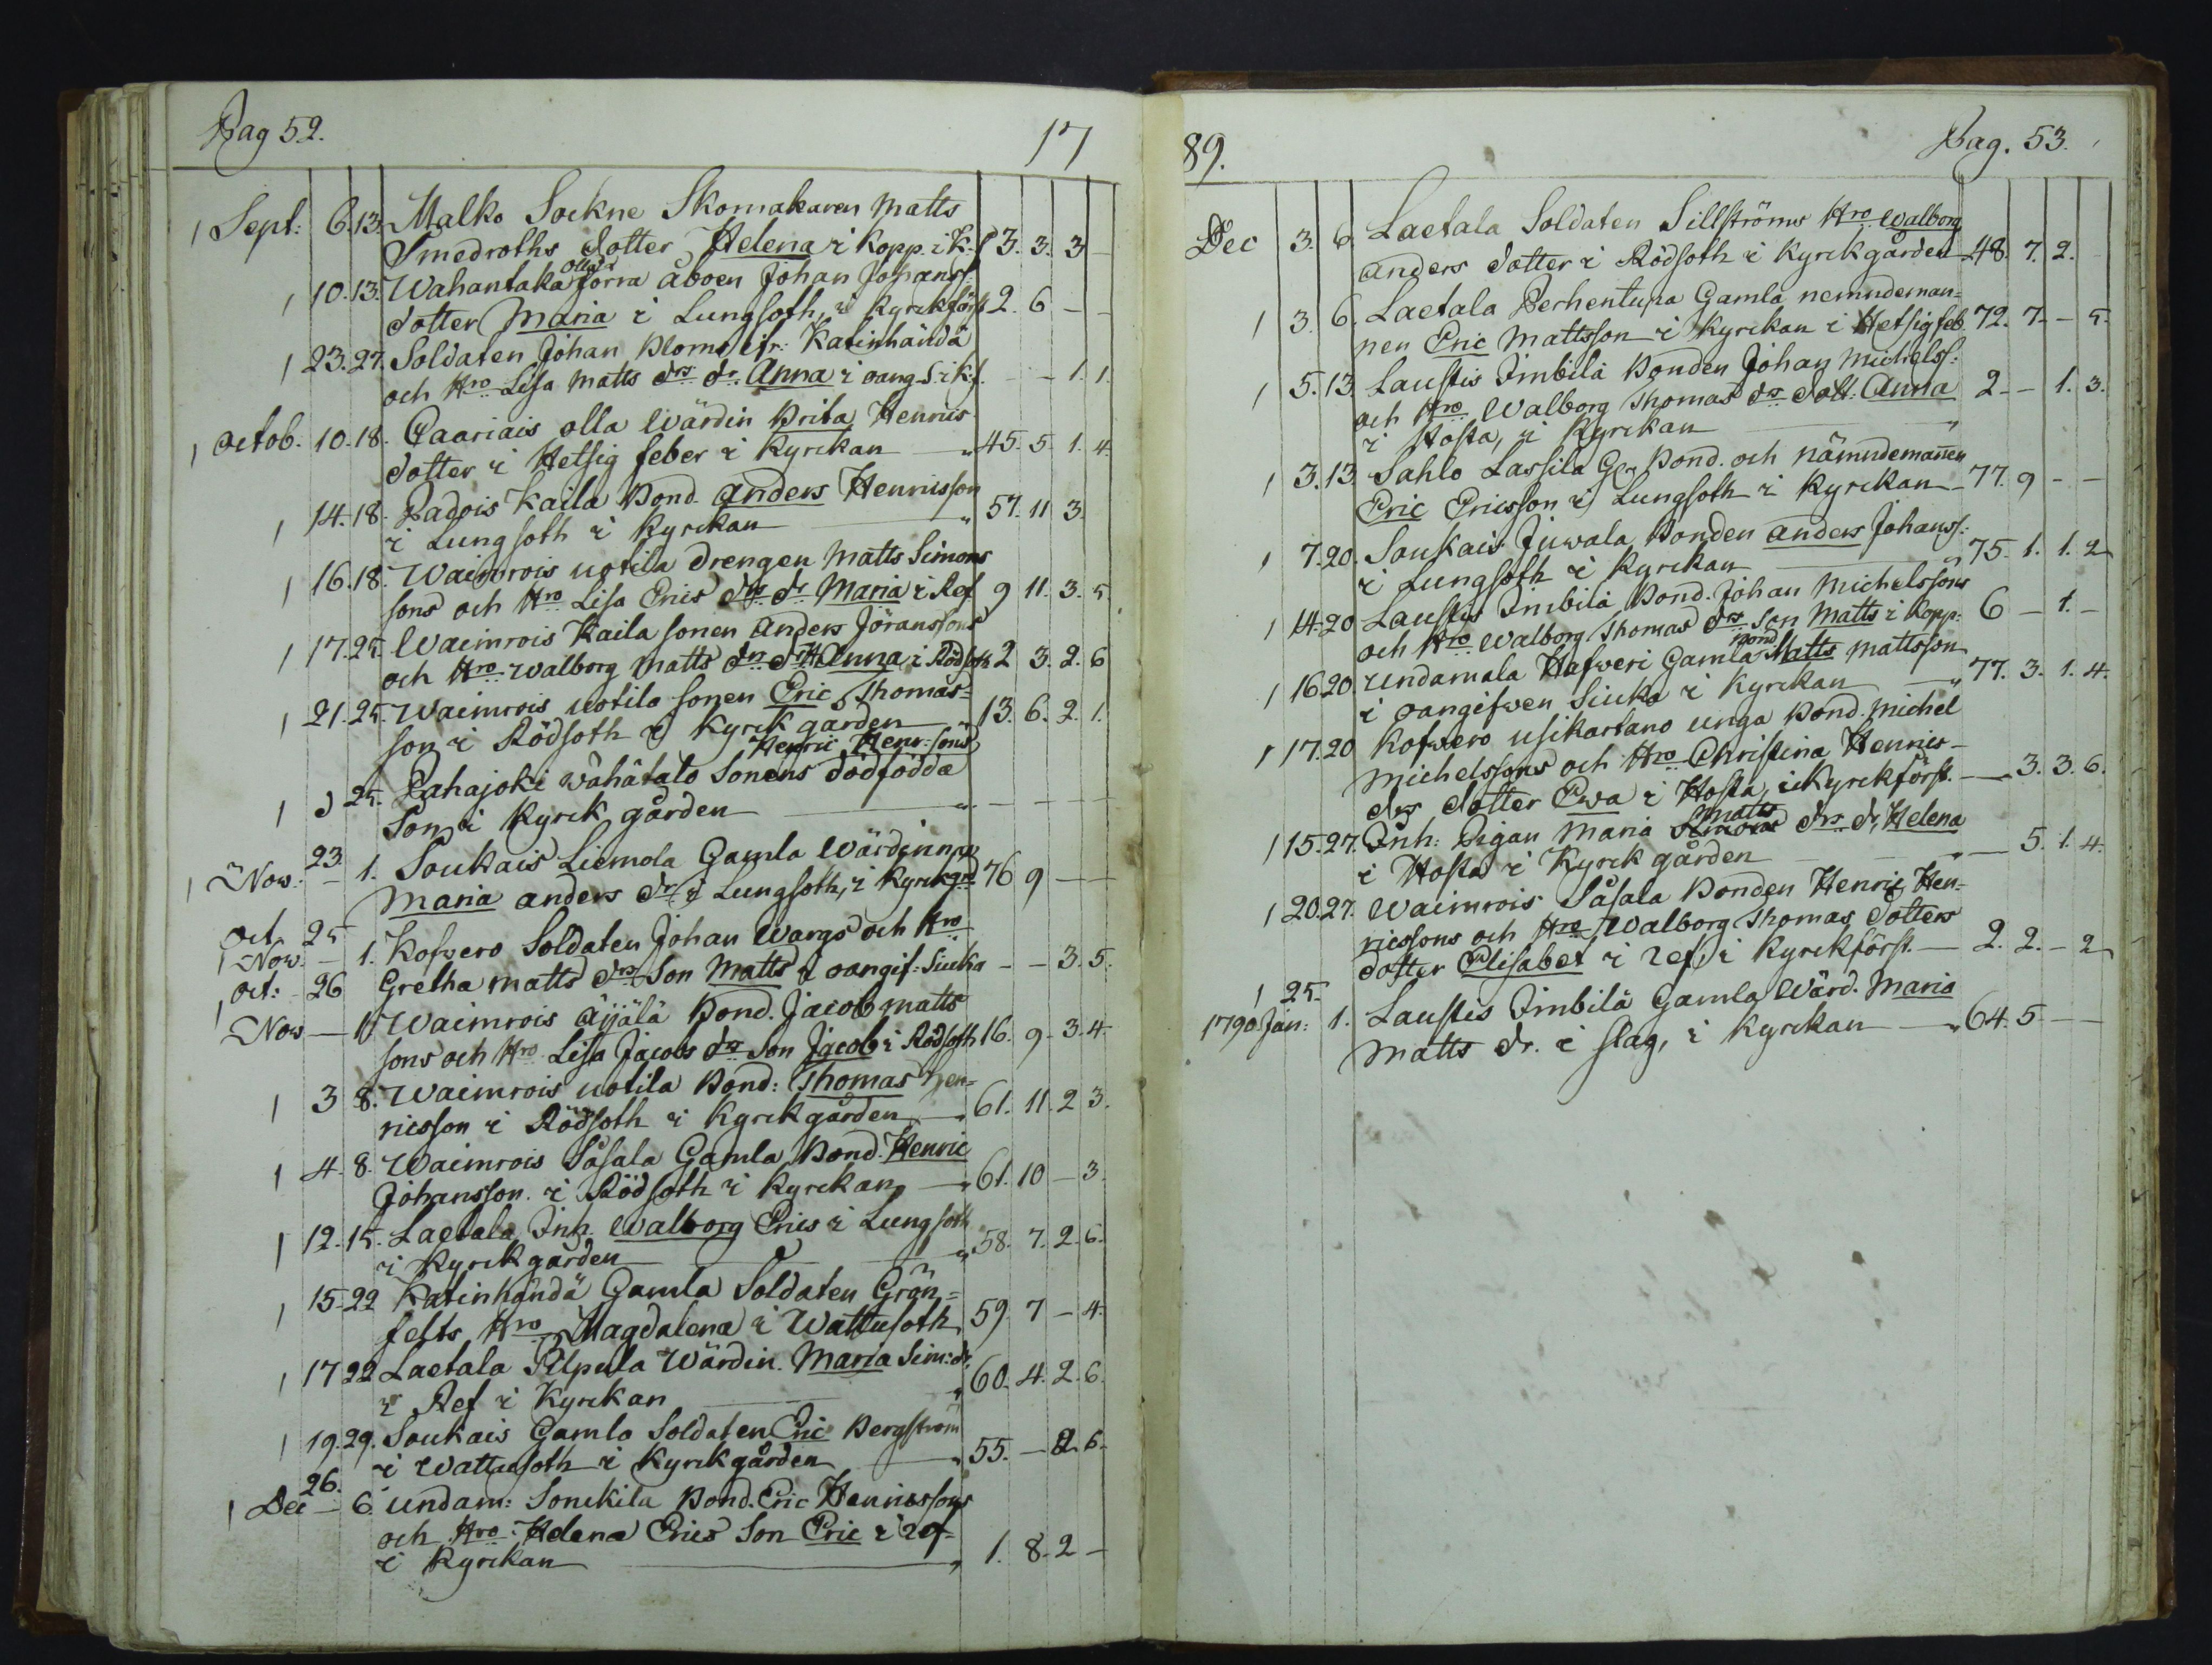 Pag 52.
17
Sept: 6. 13. Malko Sockne Skomakaren Matts
Smedroths dotter Helena i Kopp. i K:f 3. 3. 3 -
10. 13. Wahantaka Ollas förra åboen Johan Johanss:
dotter Maria i Lungsoth, i Kyrckförst 2. 6 - -
23. 27. Soldaten Johan Bloms ifr: Katinhändä
och Hro Lisa Matts drs dr. Anna i oang. S. i K:f. - - 1. 1.
octob. 10. 18. Paariais olla Wärdin Brita Henrics
dotter i Hetsig feber i Kyrckan 45. 5. 1. 4.
14. 18. Padois Kaila Bond. Anders Henricsson
i Lungsoth i Kyrckan 57. 11 3.
16. 18. Waimrois uotila drengen Matts Simons
sons och Hro Lisa Erics drs dr Maria i Ref 9 11. 3. 5.
17. 25. Waimrois Kaila sonen Anders Jöranssons
och Hro Walborg Matts drs dr Anna i Rödsoth 2 3. 2. 6
21. 25. Waimrois uotila sonen Eric Thomas=
son i Rödsoth i Kyrck garden 13. 6. 2. 1.
Henric Henr: sons
25. Pahajoki Wähätalo Sonens dödfödda
Son i Kyrck gården - - - -
23
Now. - 1. Soukais Liemola Gamla Wärdinna
Maria anders dr i Lungsoth, i Kyrckgrd 76 9 - -
Oct 25
Now. - 1. Kofwero Soldaten Johan Wargs och Hro
Oct: 26 Gretha Matts drs Son Matts i oangif: Siuka - - 3. 5.
Now - 1. Waimrois Äijälä Bond. Jacob Matts
sons och Hro Lisa Jacobs drs Son Jacob i Rödsoth 16. 9. 3. 4.
3 8. Waimrois uotila Bond: Thomas Hen=
ricsson i Rödsoth i Kyrckgården 61. 11. 2 3.
4. 8. Waimrois Såsala Gamla Bond. Henric
Johansson i Rödsoth i Kyrckan 61. 10 - 3.
12. 15. Laetala Inh. Walborg Erics i Lungsoth
i Kyrckgården 58. 7. 2. 6.
15. 22 Katinhändä Gamla Soldaten Grön=
felts Hro Magdalena i Wattusoth 59. 7 - 4.
17 22 Laetala Pilpula Wärdin. Maria Sim: dr.
i Ref i Kyrckan 60. 4. 2. 6.
19. 29. Soukais Gamla Soldaten Eric Bergström
i Wattusoth i Kyrckgården 55. - 2. 6.
26.
Dec - 6 undam: Sonckila Bond. Eric Henricssons
och Hro Helena Erics Son Eric i ref
i Kyrckan 1. 8. 2 -
89.
Pag. 53.
Dec 3. 6. Laetala Soldaten Sillströms Hro Walborg
Anders dotter i Rödsoth i Kyrckgården 48. 7. 2.
3. 6. Laetala Perhentupa Gamla nemndeman=
nen Eric Mattsson i Kyrckan i Hetsig feb. 72. 7. - 5.
5. 13. Laustis Simbilä Bonden Johan Michelss:
och Hro Walborg Thomas drs dott: Anna 2. - 1. 3.
i Hosta, i Kyrckan
3. 13. Sahlo Lassila Gla Bond. och nämndemanen
Eric Ericsson i Lungsoth i Kyrckan 77. 9 - -
7. 20. Soukais Juwala Bonden Anders Johanss:
i Lungsoth i Kyrckan 75. 1. 1. 2
14. 20 Laustis Simbilä Bond. Johan Michelssons
och Hro Walborg Thomas drs Son Matts i Kopp. 6 - 1. -
16 20. Undamala Hafweri Gamla Bond Matts Mattsson
i oangifwen Siuka i Kyrckan 77. 3. 1. 4.
17. 20 Kofwero usikartano unga Bond. Michel
Michelssons och Hro Christina Henrics-
drs dotter Ewa i Hosta, i Kyrckförst. 3. 3. 6.
15. 27. Inh: Pigan Maria Matts drs dr. Helena
i Hosta i Kyrck gården 5. 1. 4.
20. 27. Waimrois Såsala Bonden Henric Hen=
ricssons och Hro Walborg Thomas dotters
dotter Elisabet i ref. i Kyrckförst. 2. 2. - 2
25.
1790 Jan: 1. Laustis Simbilä Gamla Wärd. Maria
Matts dr. i slag, i Kyrckan 64. 5 - -